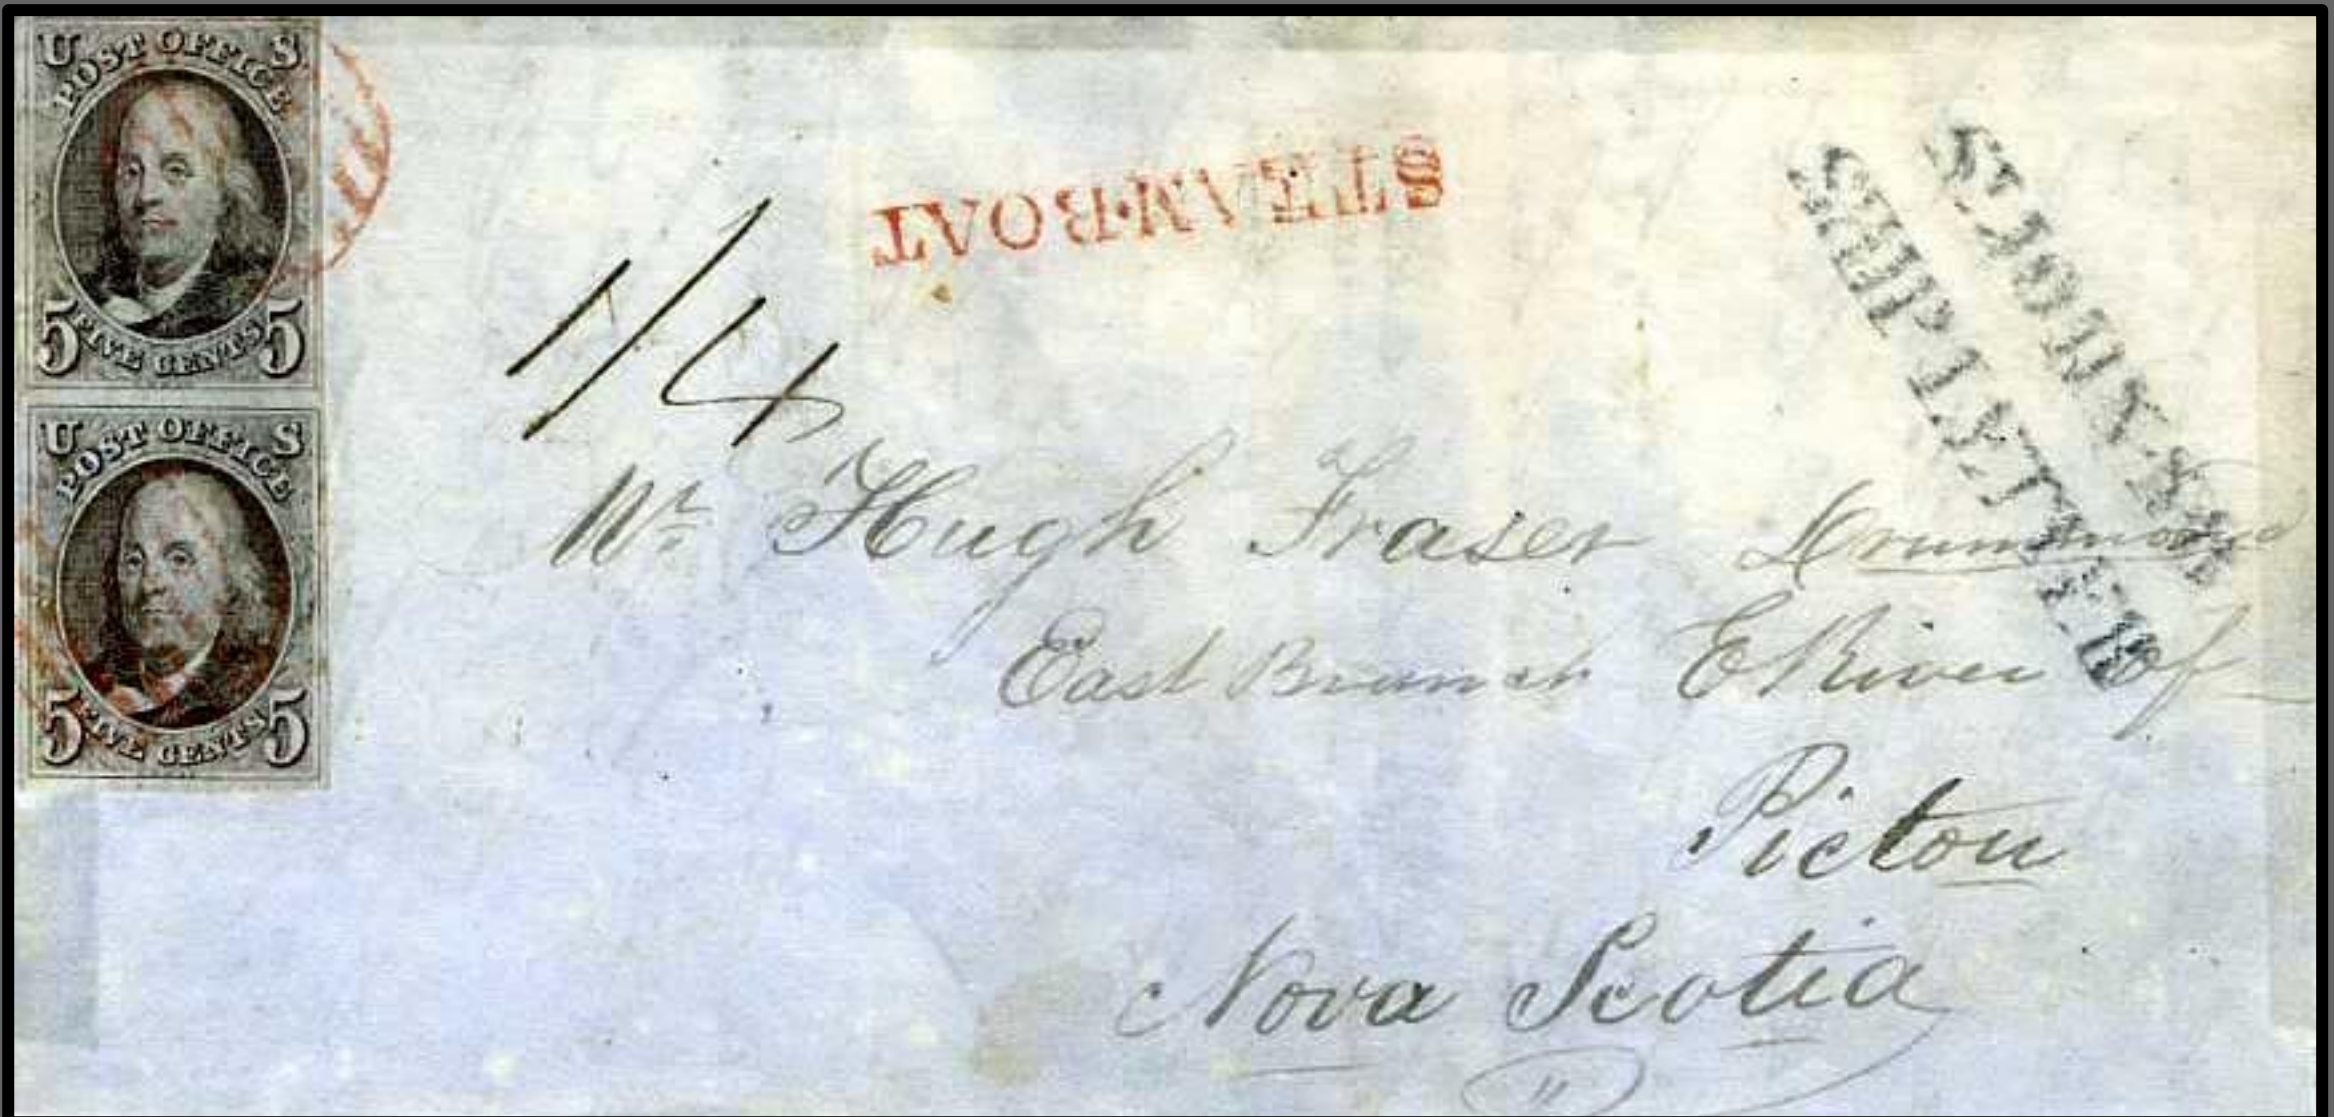 U S
POST OFFICE
5 FIVE CENTS 5
U S
POST OFFICE
5 FIVE CENTS 5
STEAM·BOAT
ST JOHN N.B
SHIP LETTER
1/4
Mr Hugh Fraser Drummond
East Branch E River of
Pictou
Nova Scotia